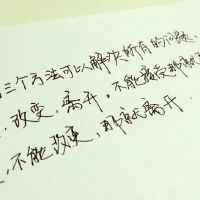 三个方法可以解决所有的问题.
,改变,离开。不能接受那就
,不能改变,那就离开.